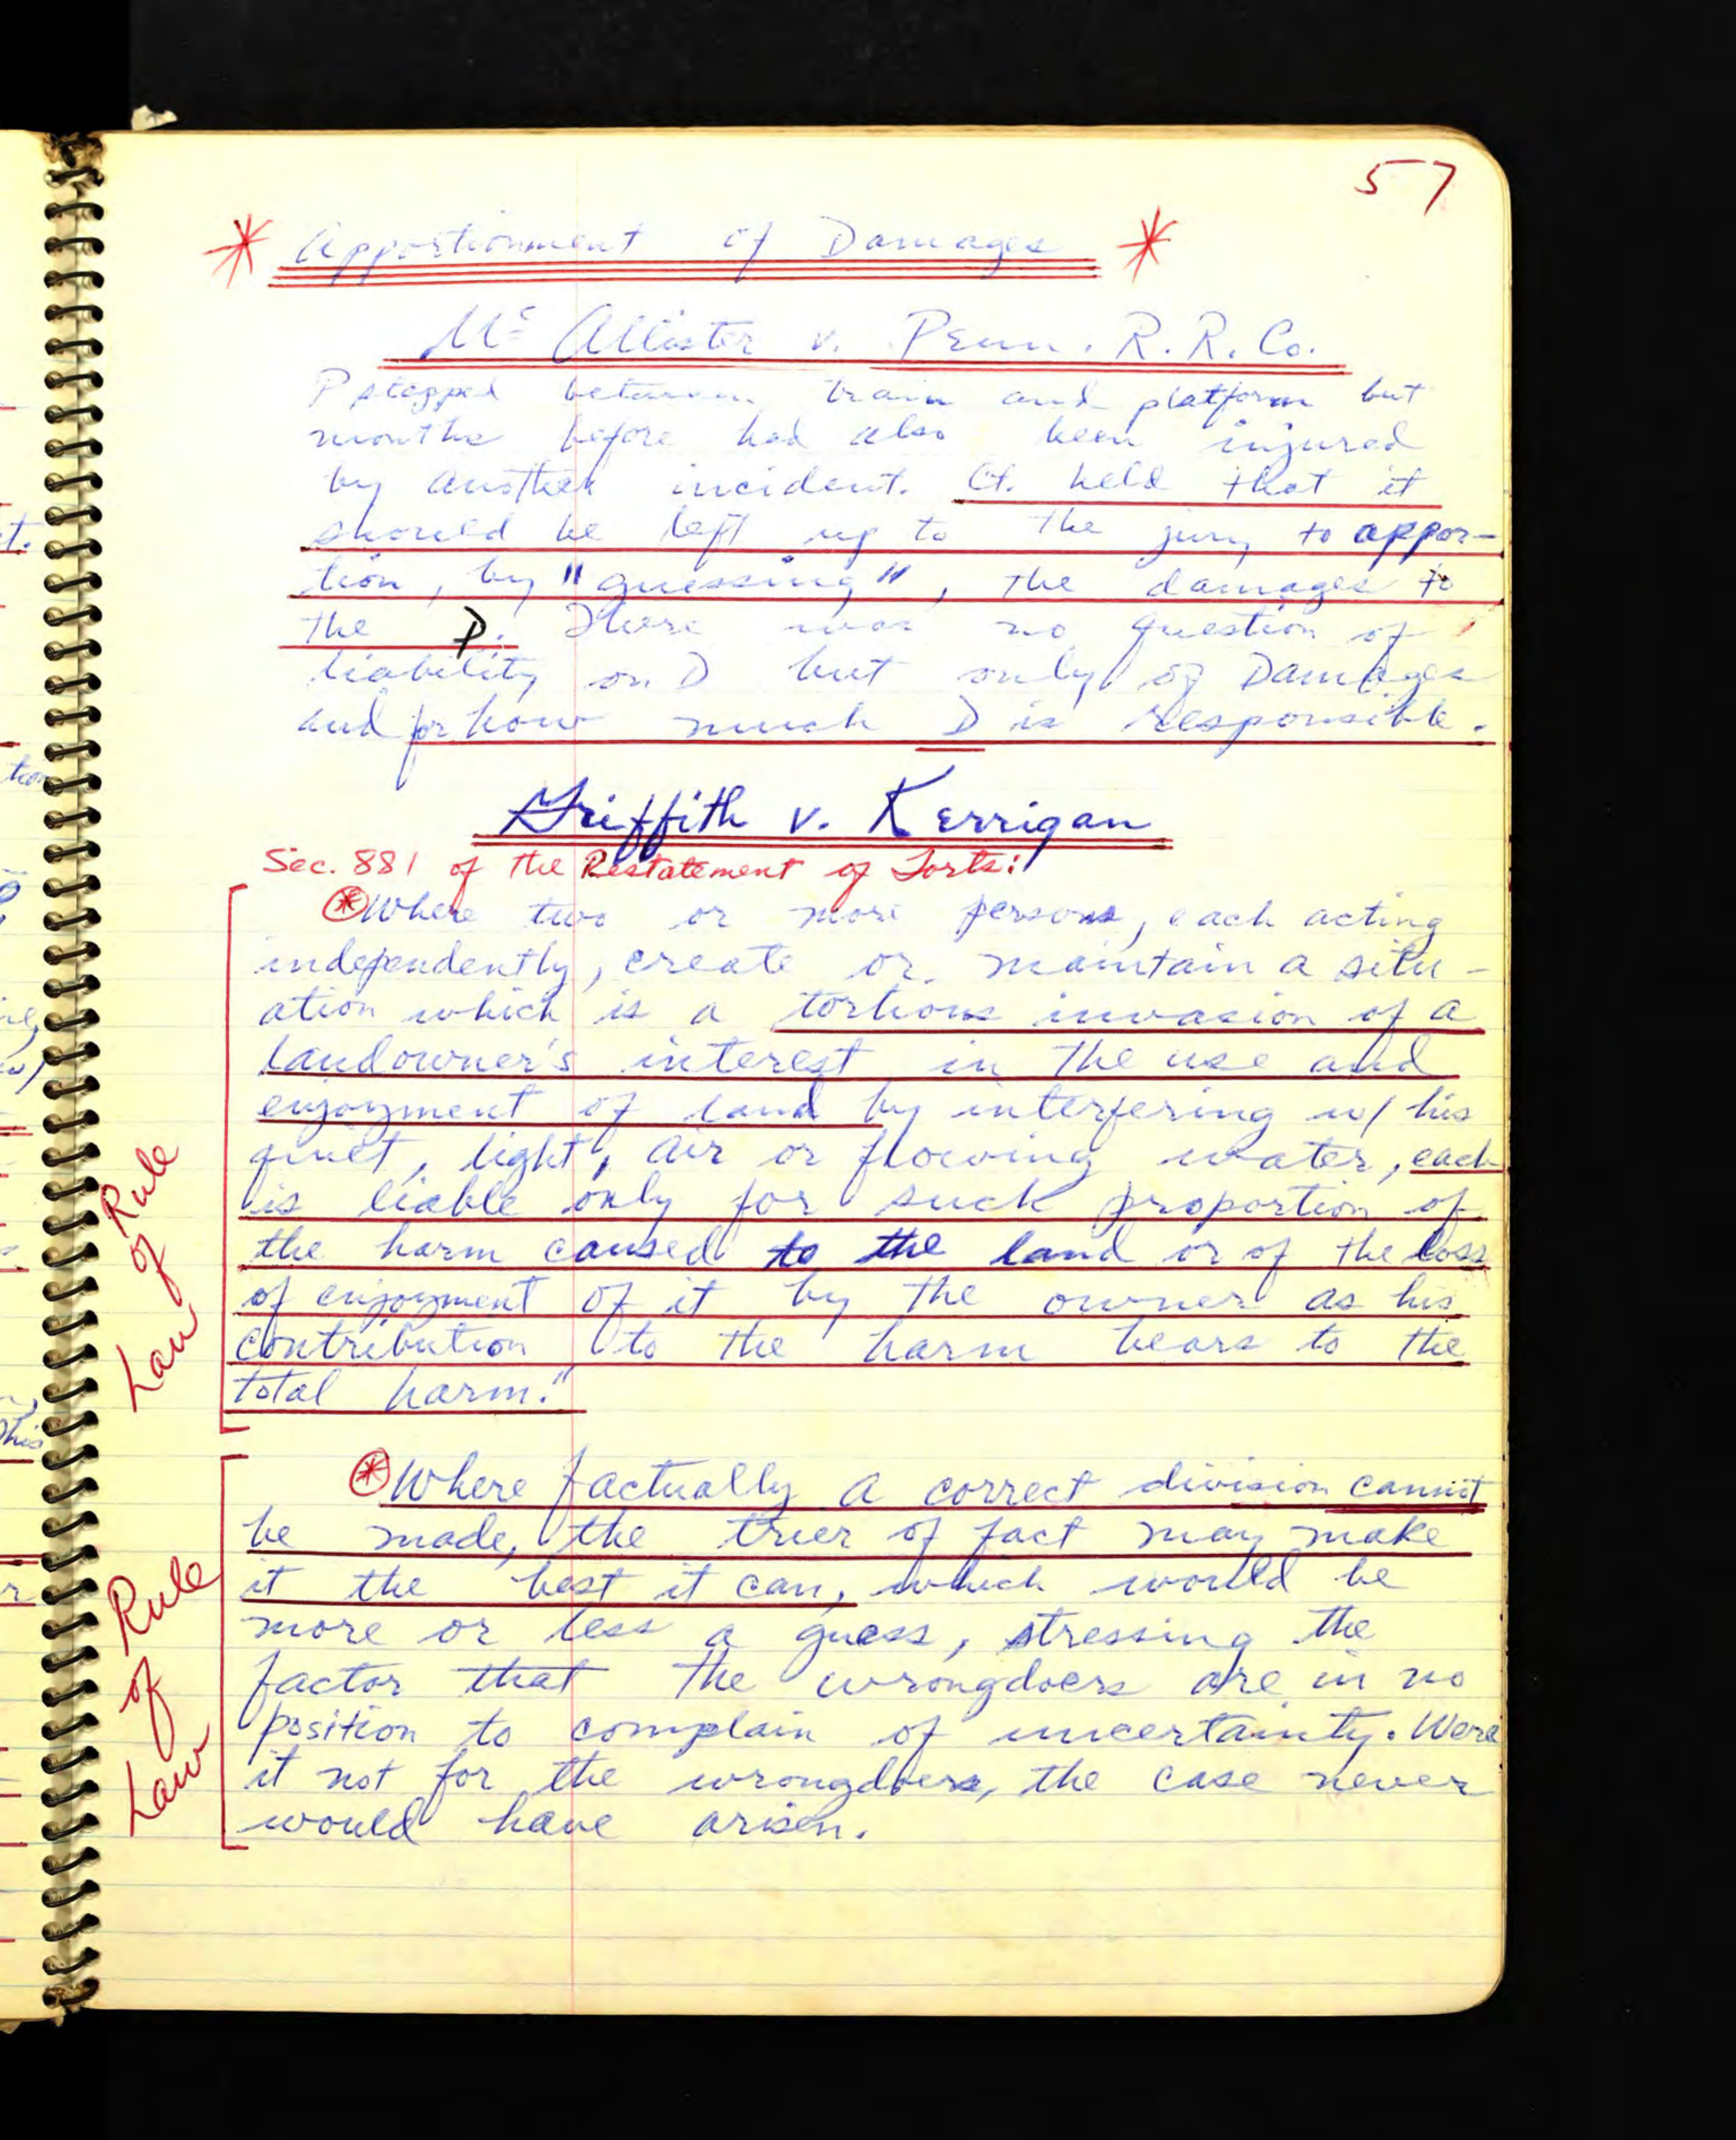 57
* Apportionment of Damages *
Mc Allister v. Penn. R.R. Co.
P stepped between train and platform but
months before had also been injured
by another incident. Ct. held that it
should be left up to the jury to appor-
tion, by "guessing", the damages to
the P. There was no question of
liability on D but only of Damages
and for how much D is responsible.
Griffith v. Kerrigan
Sec. 881 of the Restatement of Torts:
* Where two or more persons, each acting
independently, create or maintain a situ-
ation which is a tortious invasion of a
landowner's interest in the use and
enjoyment of land by interfering w/ his
quiet, light, air or flowing water, each
is liable only for such proportion of
the harm caused to the land or of the loss
of enjoyment of it by the owner as his
contribution to the harm bears to the
total harm."
Rule
of
Law
* Where factually a correct division cannot
be made, the trier of fact may make
it the best it can, which would be
more or less a guess, stressing the
factor that the wrongdoers are in no
position to complain of uncertainty. Were
it not for the wrongdoers, the case never
would have arisen.
Rule
of
Law